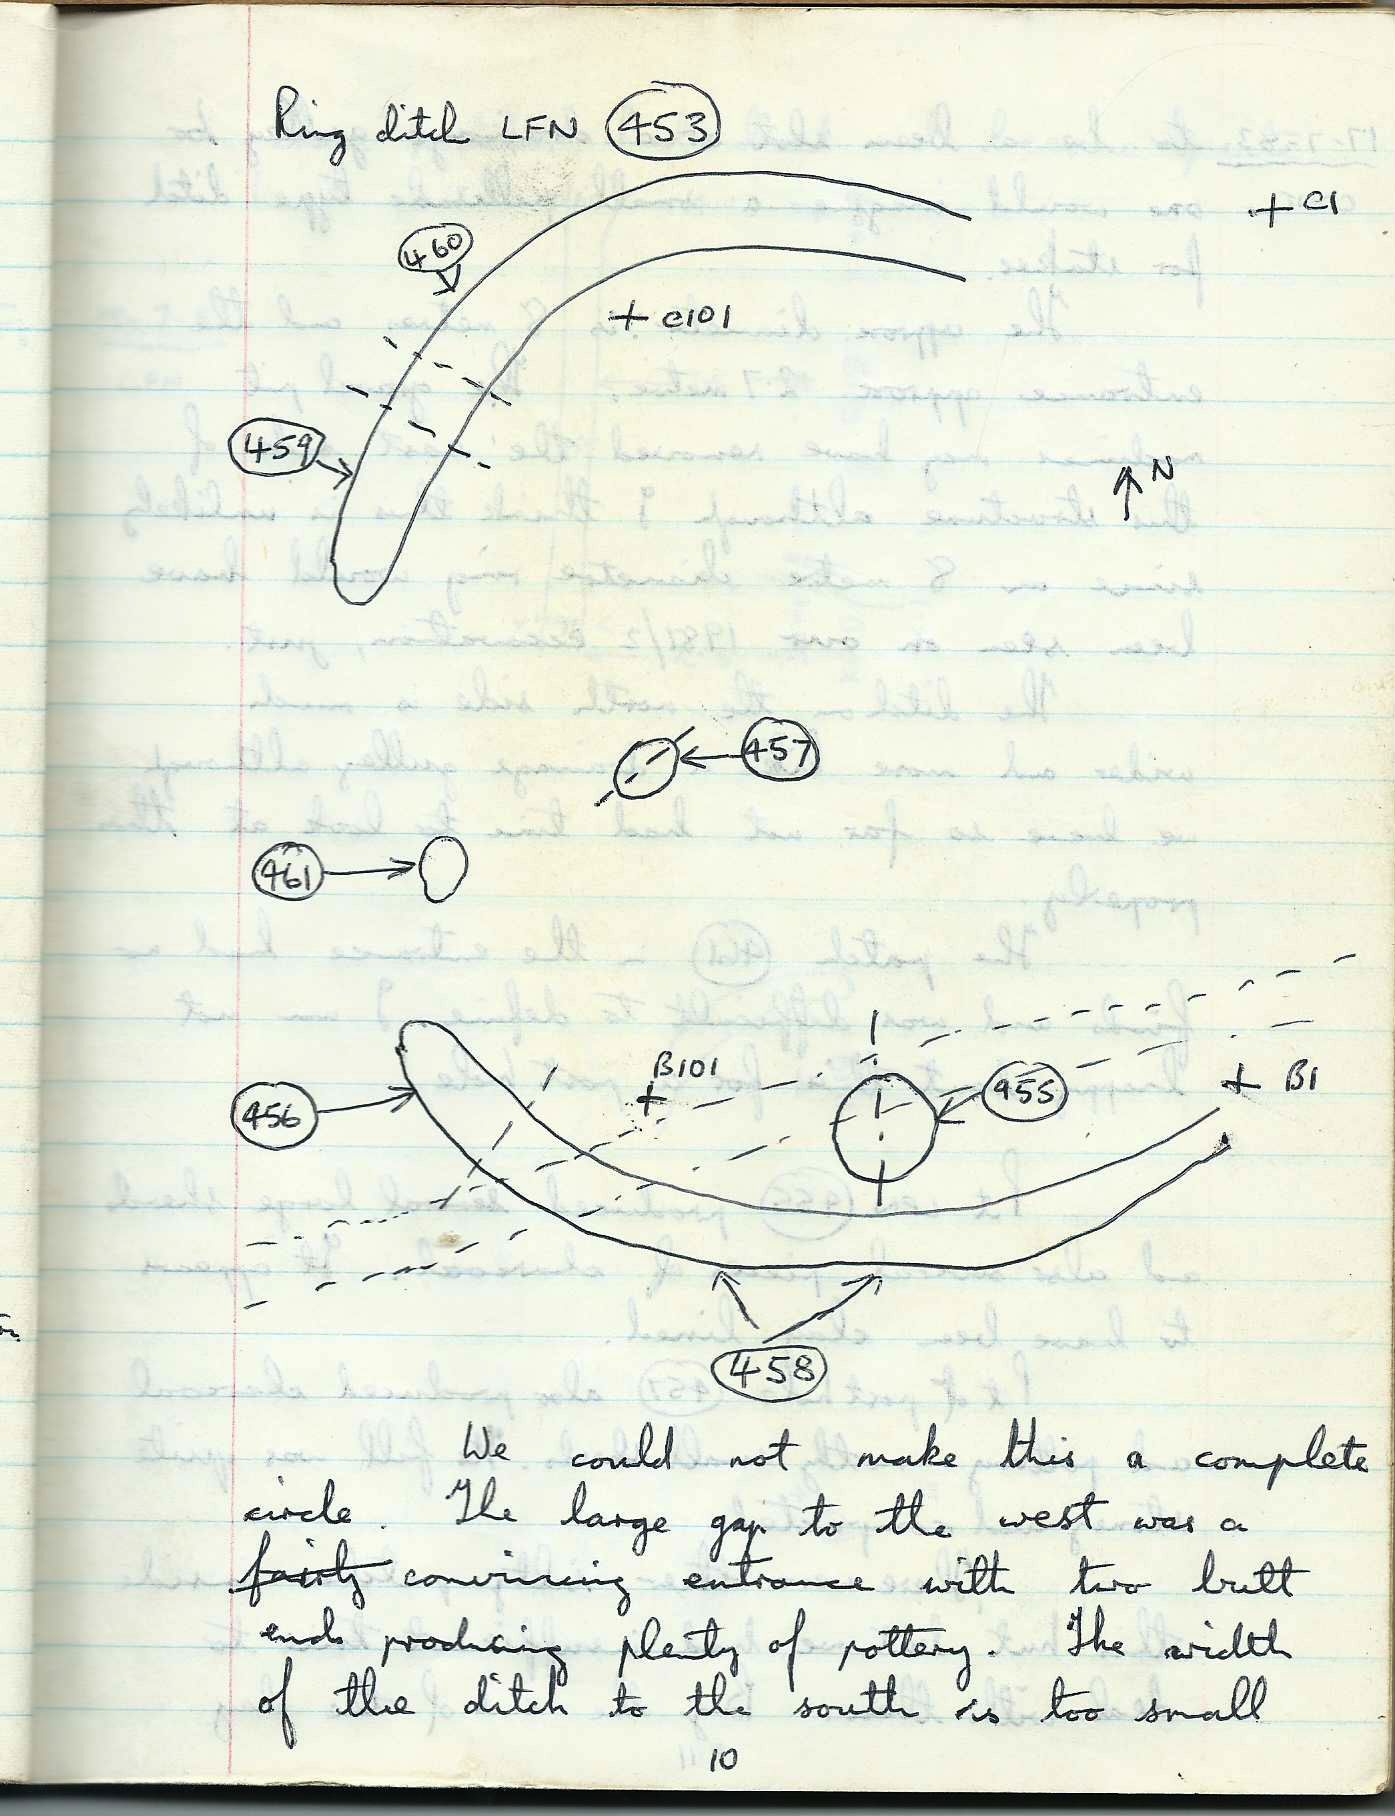 Ring ditch LFN 453
+ C1
460
+ C101
459
N
457
461
B101
+
455
+ B1
456
458
We could not make this a complete
circle. The large gap to the west was a
fairly convincing entrance with two butt
ends producing plenty of pottery. The width
of the ditch to the south is too small
10